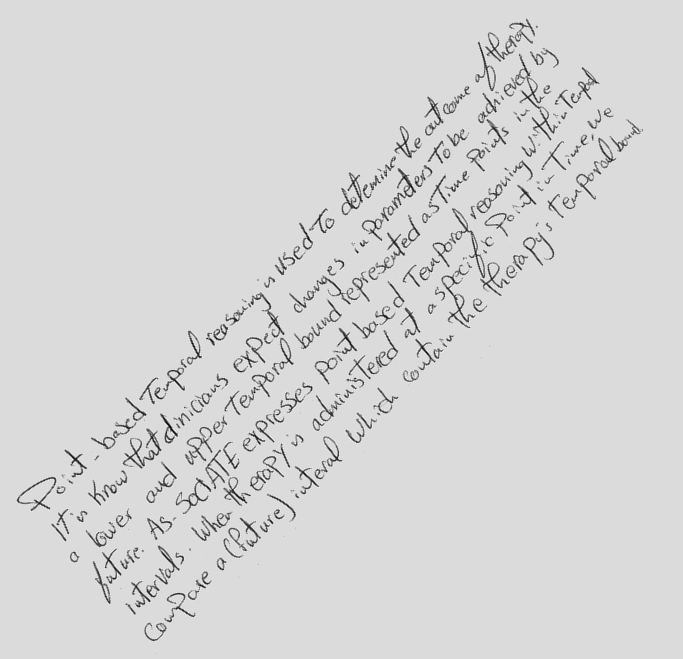 Point-based Temporal reasoning is used to determine the outcome of therapy.
It is know that clinicians expect changes in parameters to be achieved by
a lower and upper temporal bound represented as time points in the
future. As SOCIATE expresses point based temporal reasoning within temporal
intervals. When therapy is administered at a specific point in time, we
compare a (future) interval which contain the therapy's temporal bound.